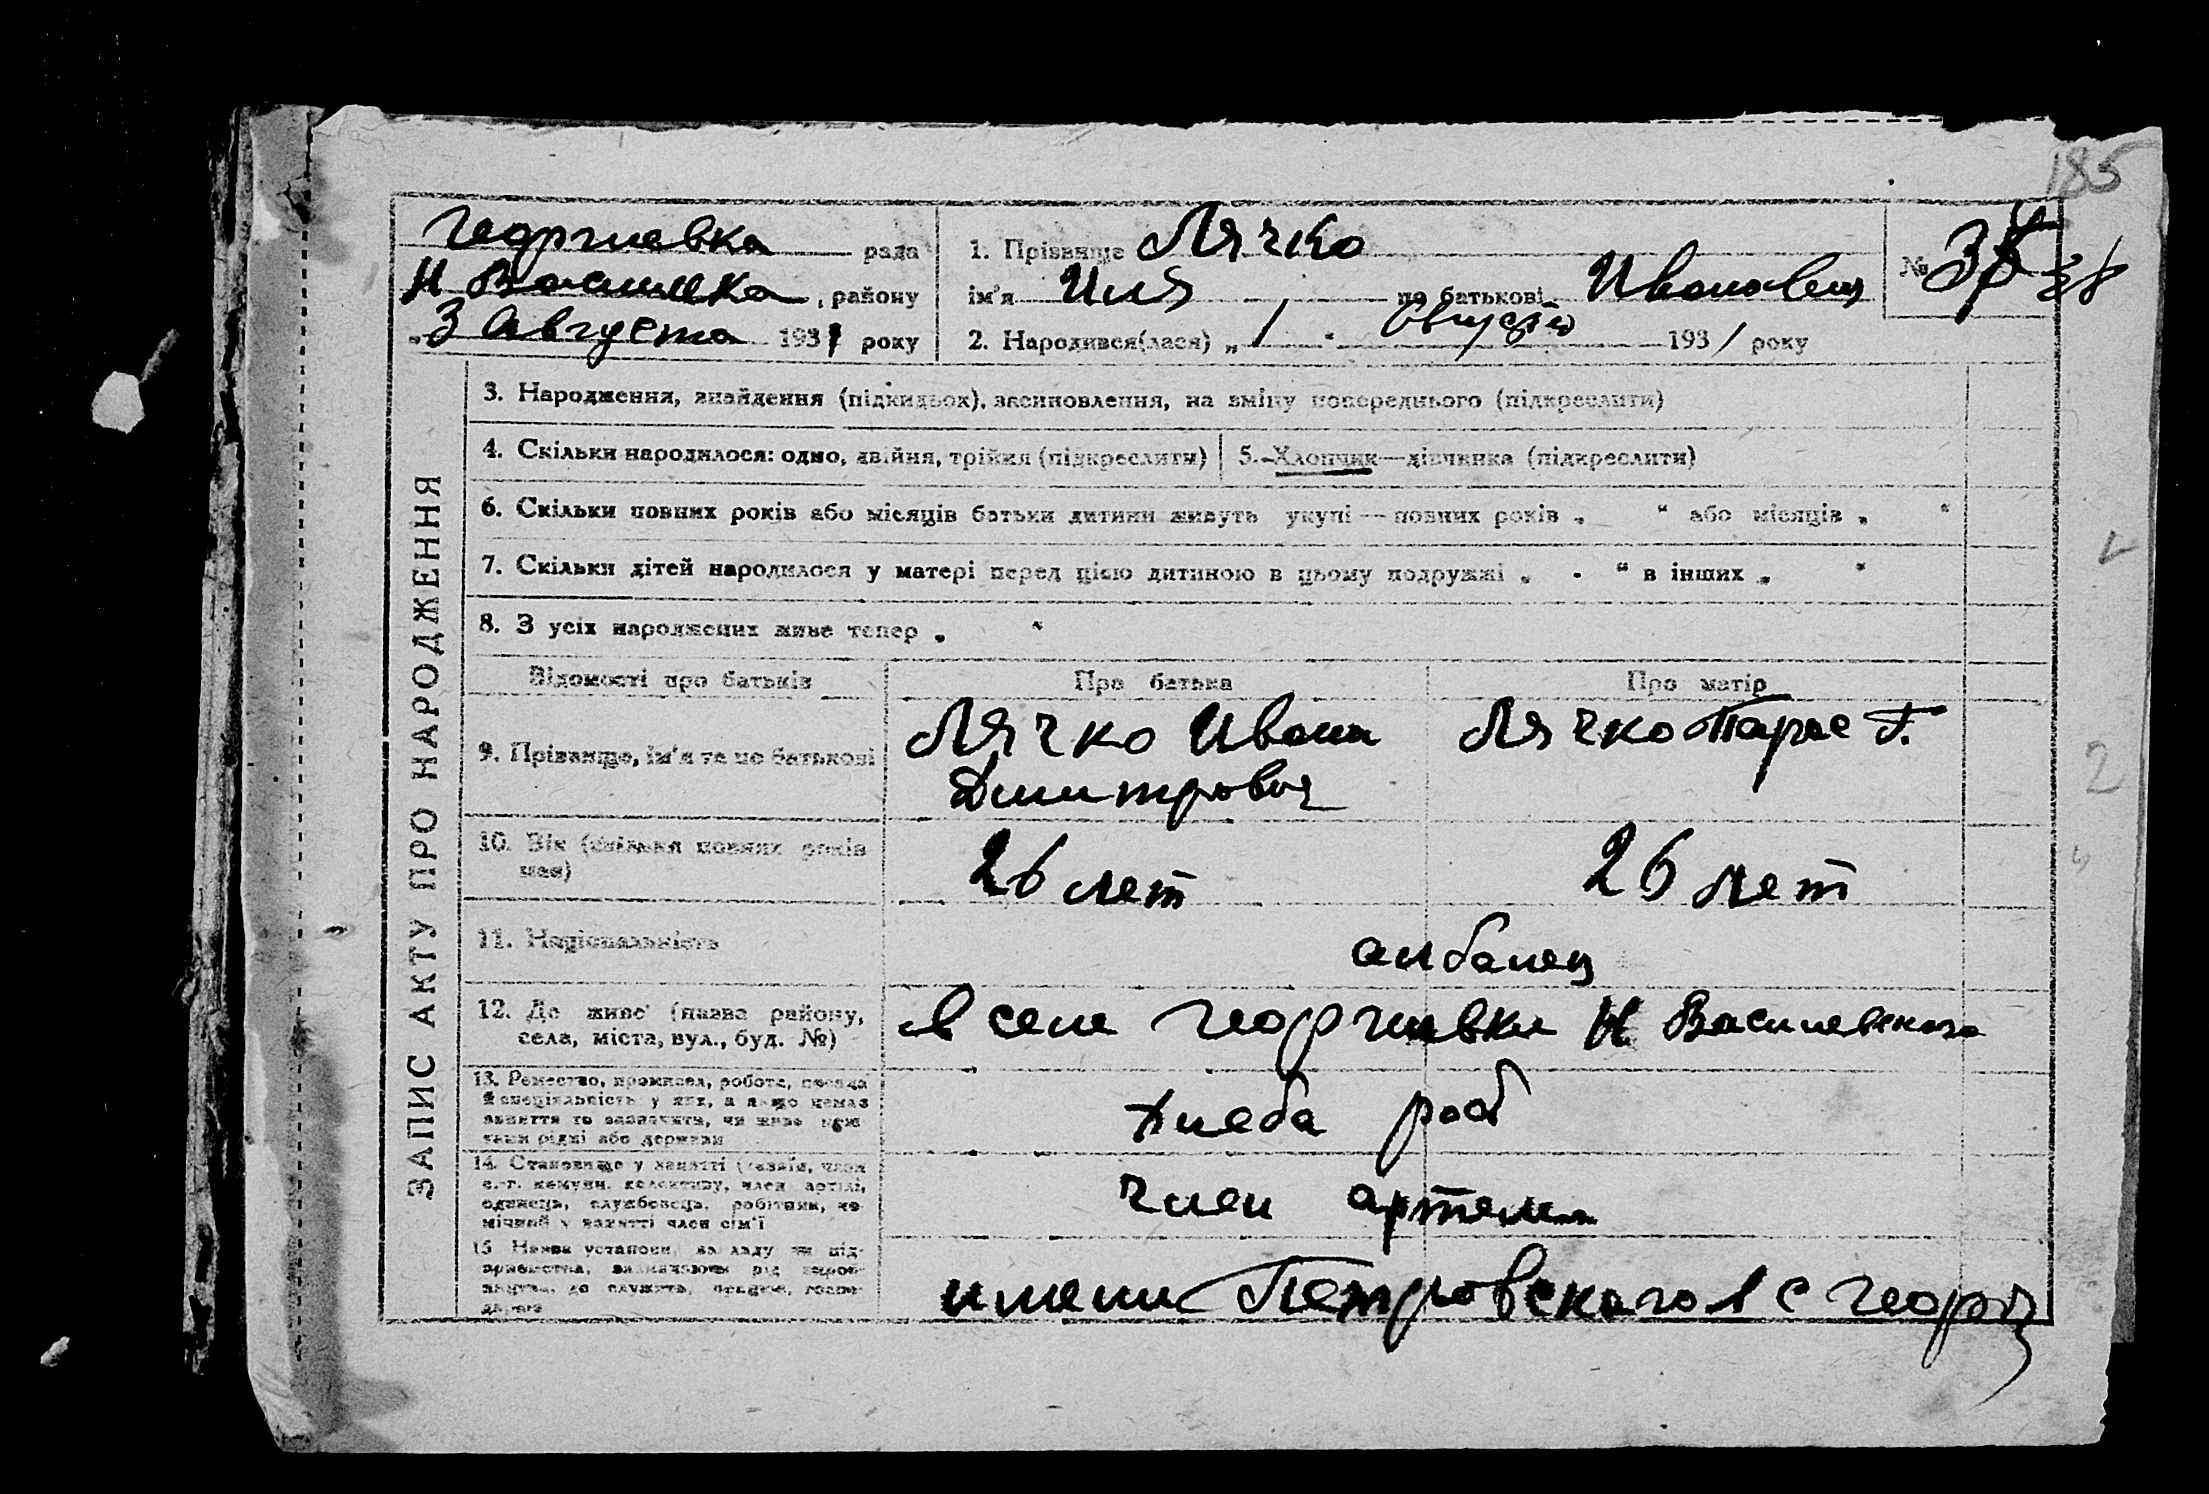 185
Георгиевка рада
Н Василевка, району
„3 Августа 1931 року
1. Прізвище Лячко
ім'я Илья по батькові Иванович
2. Народився(лася) „1" Августа 1931 року
№ 38
ЗАПИС АКТУ ПРО НАРОДЖЕННЯ
3. Народження, знайдення (підкидьок), засиновлення, на зміну попереднього (підкреслити)
4. Скільки народилося: одно, двійня, трійня (підкреслити)
5. Хлопчик—дівчинка (підкреслити)
6. Скільки повних років або місяців батьки дитини живуть укупі — повних років „ " або місяців „ "
7. Скільки дітей народилося у матері перед цією дитиною в цьому подружжі „ " в інших „ "
8. З усіх народжених живе тепер „ "
Відомості про батьків
Про батька
Про матір
9. Прізвище, ім'я та по батькові
Лячко Иван
Дмитрович
Лячко Г.
10. Вік (скільки повних років
має)
26 лет
26 лет
11. Національність
албанец
12. Де живе (назва району,
села, міста, вул., буд. №)
в селе Георгиевки Н Василевского
13. Ремество, промисел, робота, посада
й спеціяльність у них, а якщо немає
заняття то зазначити, чи живе
рідні або держави
Хлеба роб
14. Становище у занятті (член
с.-г. комуни, колективу, член артілі,
одинець, службовець, робітник,
у занятті член сім'ї
член артели
15 Назва установи,
де служить,
имени Петровского в с Георг
2